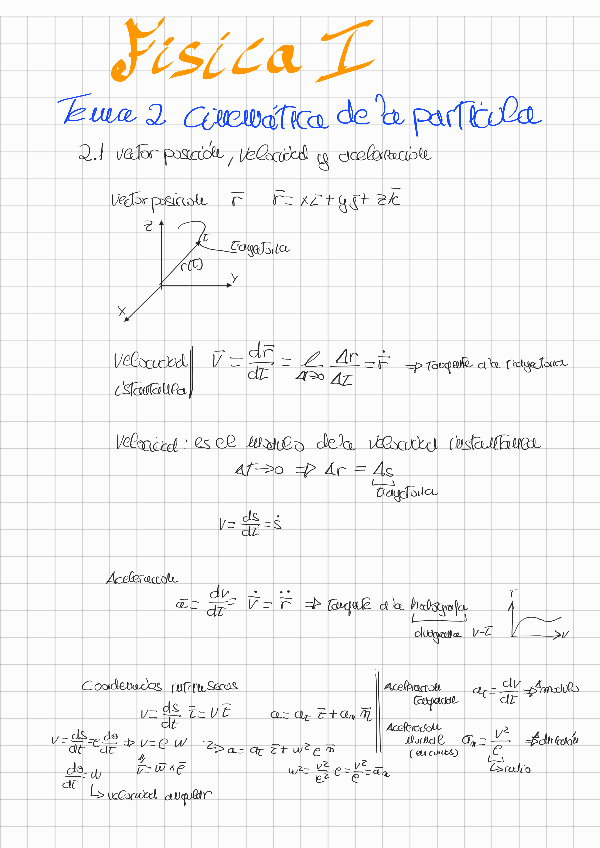 Física I
Tema 2 Cinemática de la partícula
2.1 vector posición, velocidad y aceleración
Vector posición r̄ r̄ = xī + yj̄ + zk̄
z
t
trayectoria
r(t)
y
x
Velocidad v̄ = dr̄/dt = lim Δt→0 Δr/Δt = ṙ ⇒ tangente a la trayectoria
instantánea
Velocidad: es el modulo de la velocidad instantánea
Δt → 0 ⇒ Δr = Δs
trayectoria
v = ds/dt = ṡ
Aceleración
ā = dv/dt = v̇ = r̈ ⇒ tangente a la hodografa
r
diagrama v-t
v
Coordenadas intrinsecas
v = ds/dt τ̄ = v τ̄ a = aₜ τ̄ + aₙ n̄
v = ds/dt = ρ dθ/dt ⇒ v = ρ w ⇒ a = aₜ τ̄ + w² ρ n̄
v̄ = w̄ × ρ̄
w² = v²/ρ² ρ = v²/ρ = āₙ
dθ/dt = w
↳ velocidad angular
Aceleración tangencial aₜ = dv/dt ⇒ Δ modulo
Aceleración normal aₙ = v²/ρ ⇒ Δ dirección
↳ radio